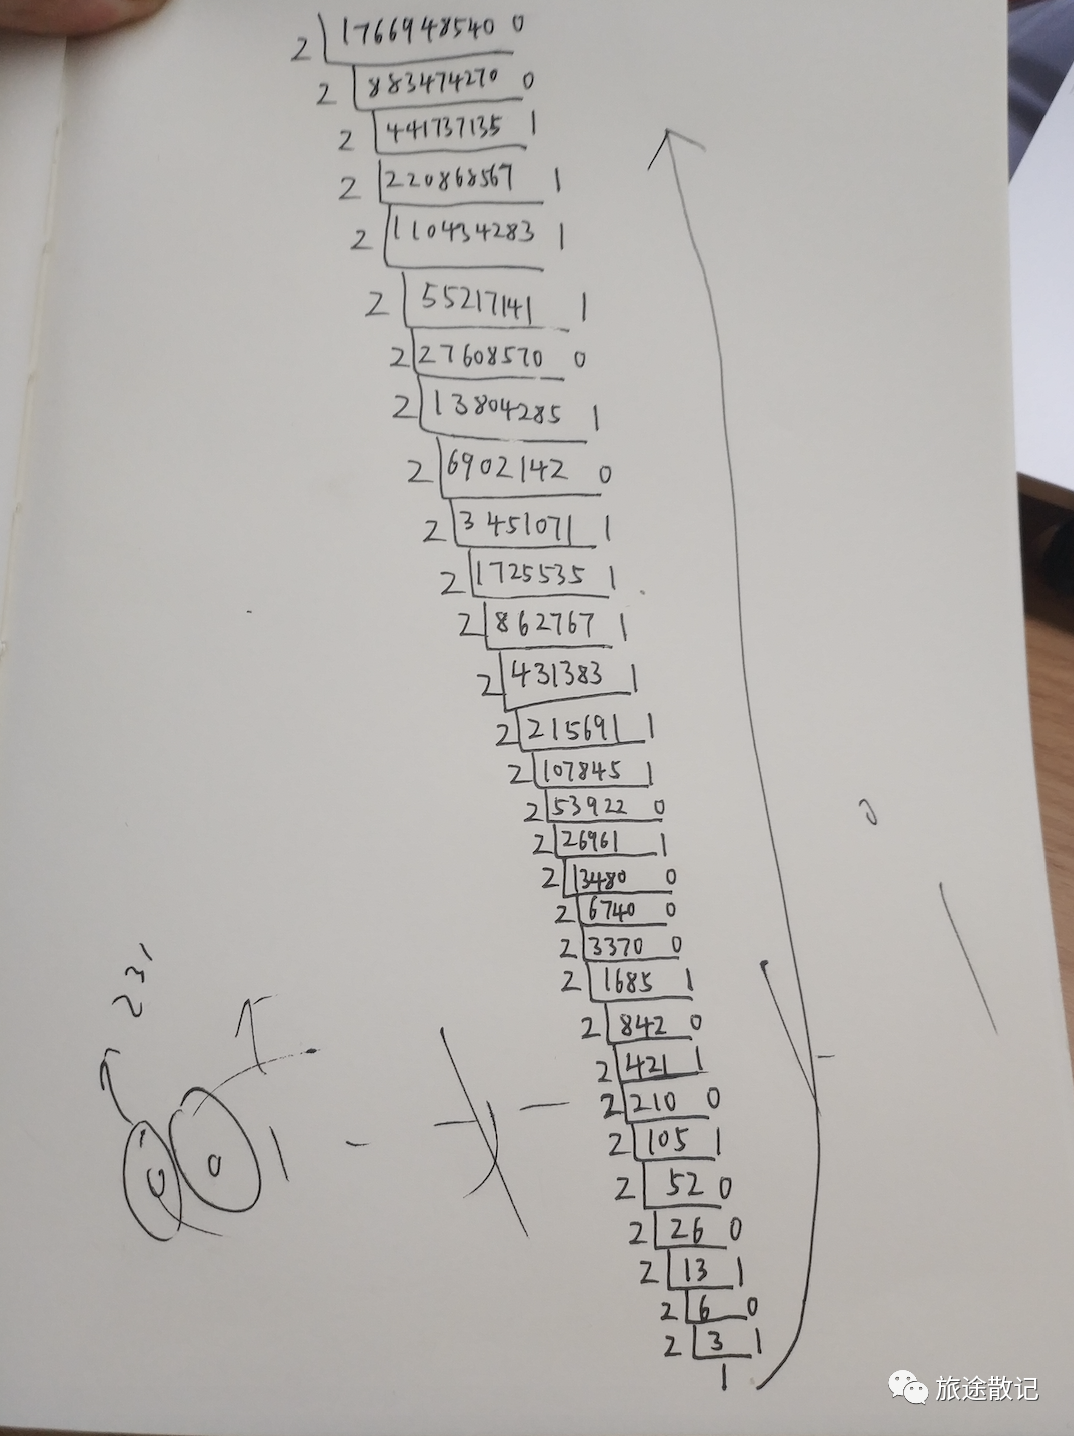 2 1766948540 0
2 883474270 0
2 441737135 1
2 220868567 1
2 110434283 1
2 55217141 1
2 27608570 0
2 13804285 1
2 6902142 0
2 3451071 1
2 1725535 1
2 862767 1
2 431383 1
2 215691 1
2 107845 1
2 53922 0
2 26961 1
2 13480 0
2 6740 0
2 3370 0
2 1685 1
2 842 0
2 421 1
2 210 0
2 105 1
2 52 0
2 26 0
2 13 1
2 6 0
2 3 1
1
2³¹
0 0 1 -
0
旅途散记